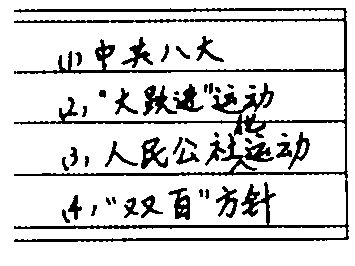 (1) 中共八大
(2) "大跃进"运动
(3) 人民公社化运动
(4) "双百"方针